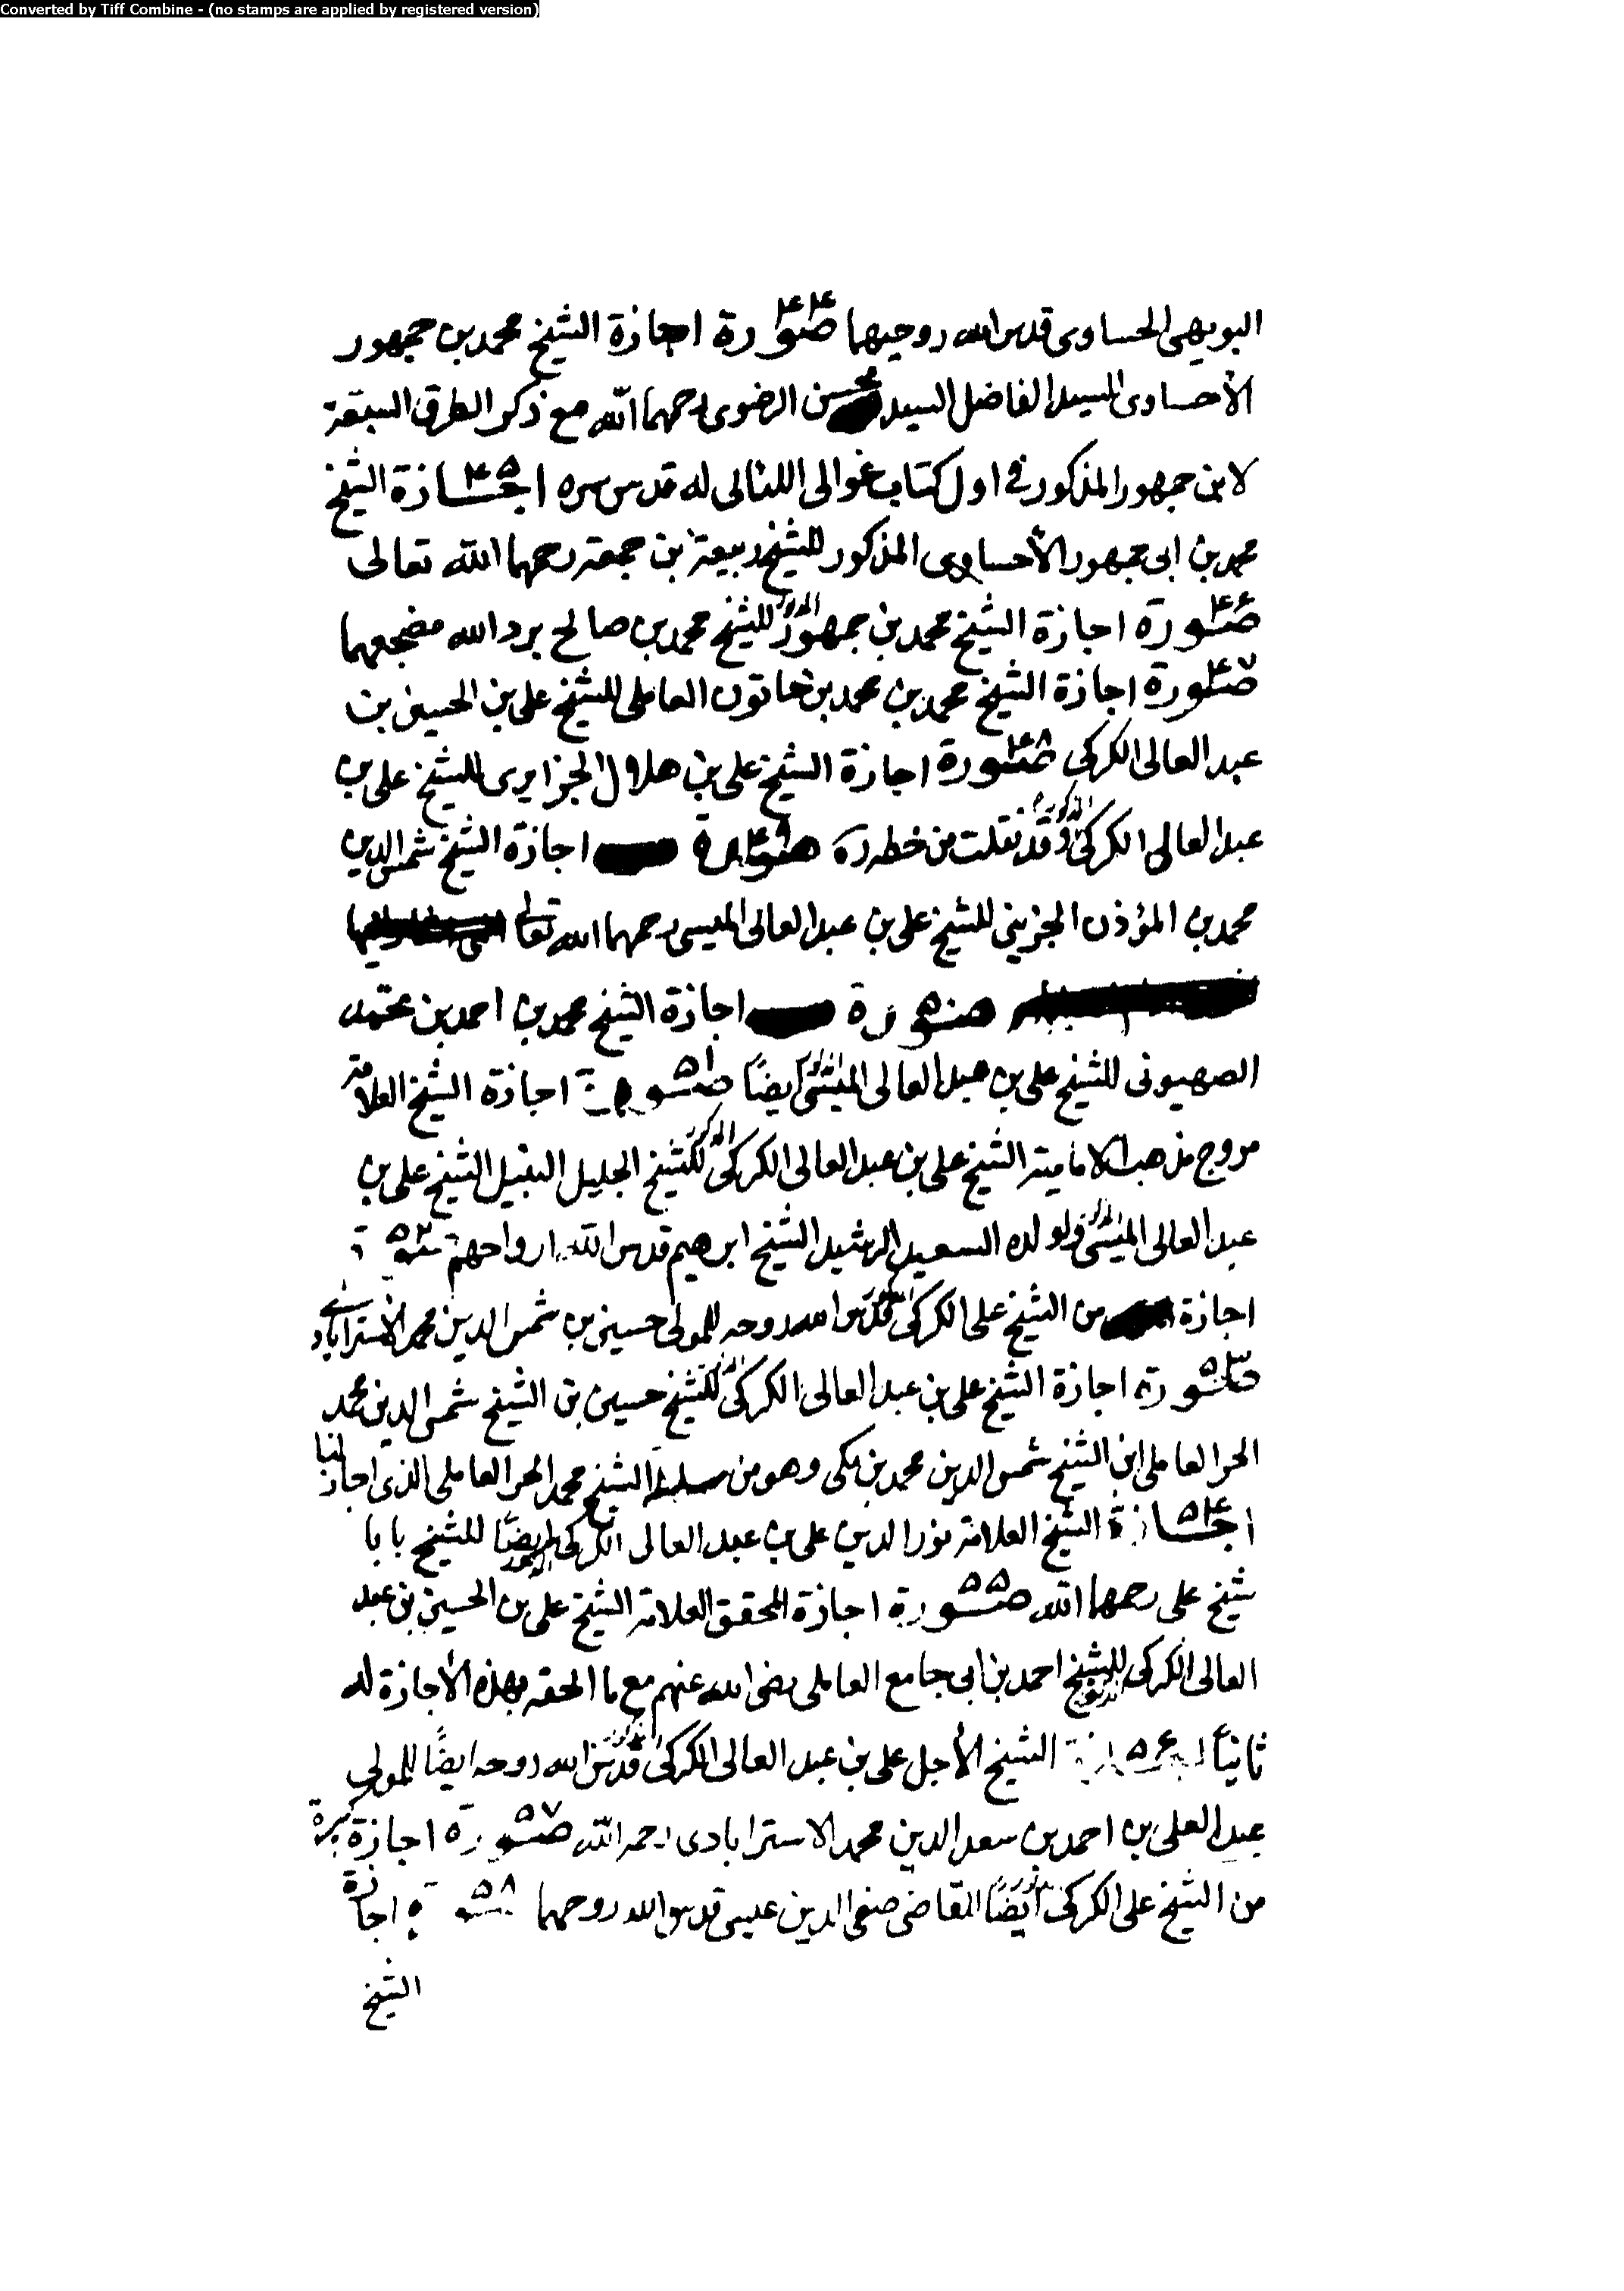 Converted by Tiff Combine - (no stamps are applied by registered version)
البويهى الحساوى قدس الله روحيهما صورة ۴۴ اجازة الشيخ محمد بن جمهور
الأحساوى للسيد الفاضل السيد محسن الرضوى رحمهما الله مع ذكر الطرق السبعة
لابن جمهور المذكور فى اول كتاب غوالى اللئالى له قدس سره اجازة ۴۵ الشيخ
محمد بن ابى جمهور الأحساوى المذكور للشيخ ربيعة بن جمعة رحمهما الله تعالى
صورة ۴۶ اجازة الشيخ محمد بن جمهور المذكور للشيخ محمد بن صالح برد الله مضجعهما
صورة ۴۷ اجازة الشيخ محمد بن محمد بن خاتون العاملى للشيخ على بن الحسين بن
عبد العالى الكركى صورة ۴۸ اجازة الشيخ على بن هلال الجزايرى للشيخ على بن
عبد العالى الكركى المذكور وقد نقلت من خطه ره صورة ۴۹ اجازة الشيخ شمس الدين
محمد بن المؤذن الجزينى للشيخ على بن عبد العالى الميسى رحمهما الله تعالى
صورة ۵۰ اجازة الشيخ محمد بن احمد بن محمد
الصهيونى للشيخ على بن عبد العالى الميسى المذكور ايضًا صورة ۵۱ اجازة الشيخ العلامة
مروج مذهب الامامية الشيخ على بن عبد العالى الكركى المذكور للشيخ الجليل النبيل الشيخ على بن
عبد العالى الميسى المذكور ولولده السعيد الرشيد الشيخ ابرهيم قدس الله ارواحهم صورة ۵۲
اجازة من الشيخ على الكركى المذكور قدس الله روحه للمولى حسين بن شمس الدين محمد الاسترابادى
صورة ۵۳ اجازة الشيخ على بن عبد العالى الكركى المذكور للشيخ حسين بن الشيخ شمس الدين محمد
الحر العاملى ابن الشيخ شمس الدين محمد بن مكى وهو من سلسلة الشيخ محمد الحر العاملى الذى اجازنا
اجازة ۵۴ الشيخ العلامة نور الدين على بن عبد العالى الكركى المذكور ايضًا للشيخ بابا
شيخ على رحمهما الله صورة ۵۵ اجازة المحقق العلامة الشيخ على بن الحسين بن عبد
العالى الكركى المذكور للشيخ احمد بن ابى جامع العاملى رضى الله عنهم مع ما الحقه بهذه الأجازة له
ثانيًا اجازة ۵۶ الشيخ الأجل على بن عبد العالى الكركى المذكور قدس الله روحه ايضًا للمولى
عبد العلى بن احمد بن سعد الدين محمد الاسترابادى رحمه الله صورة ۵۷ اجازة كبيرة
من الشيخ على الكركى المذكور ايضًا للقاضى صفى الدين عيسى قدس الله روحهما صورة ۵۸ اجازة
الشيخ